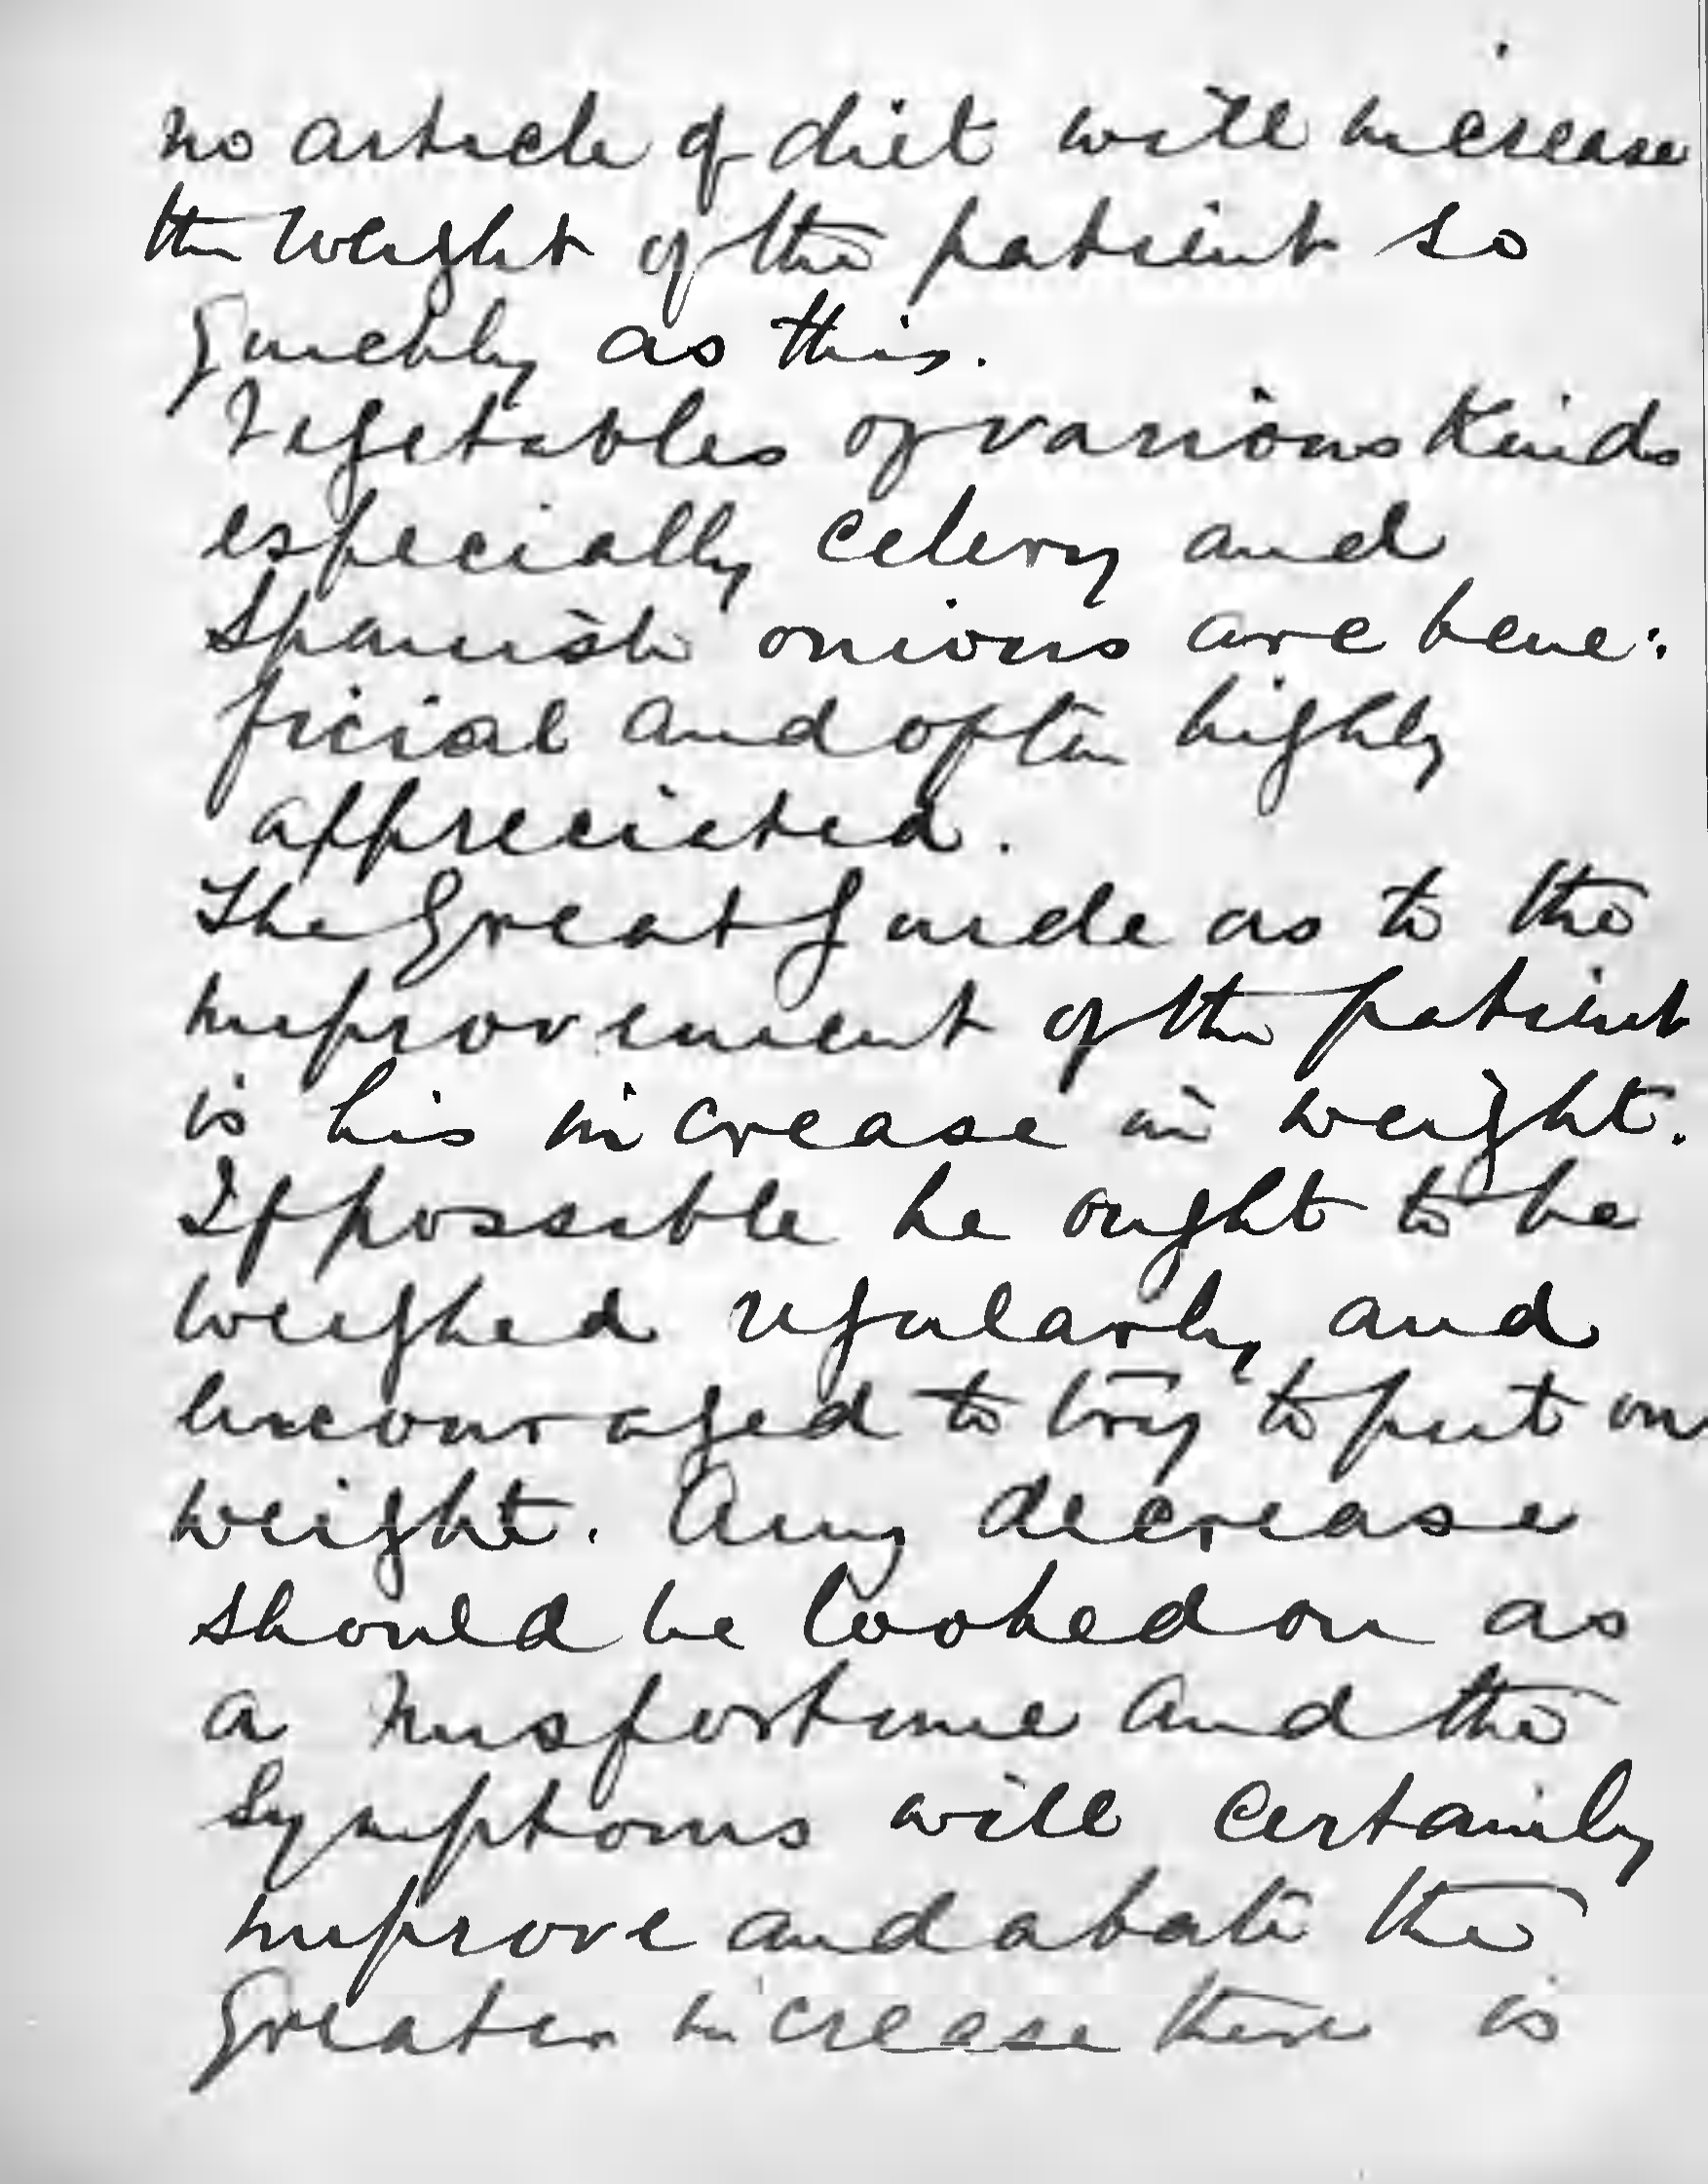 no article of diet will increase
the weight of the patient so
quickly as this.
Vegetables of various kinds
especially celery and
Spanish onions are bene:
ficial and often highly
appreciated.
The Great guide as to the
improvement of the patient
is his increase in weight.
If possible he ought to be
weighed regularly and
encouraged to try to put on
weight. Any decrease
should be looked on as
a misfortune and the
symptoms will certainly
improve and abate the
greater increase there is